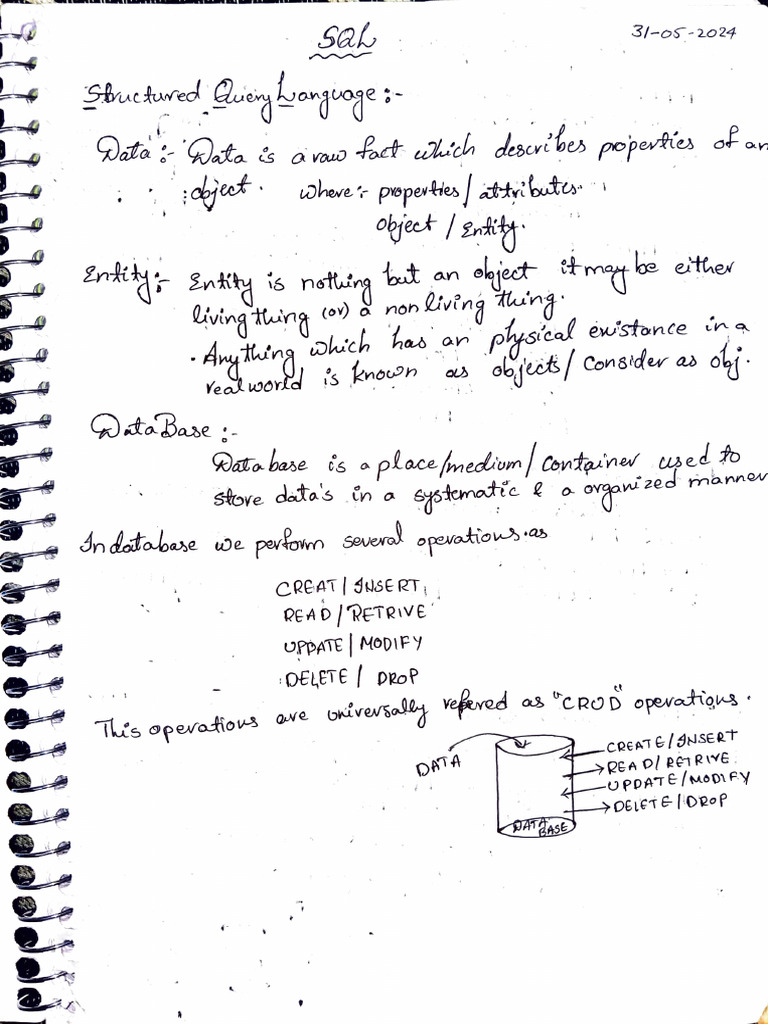 SQL
31-05-2024
Structured Query Language :-
Data :- Data is a raw fact which describes properties of an
object. where :- properties / attributes.
object / Entity.
Entity :- Entity is nothing but an object it may be either
living thing (or) a non living thing.
. Anything which has an physical existance in a
real world is known as objects / consider as obj.
DataBase :-
Database is a place/medium/container used to
store data's in a systematic & a organized manner
In database we perform several operations.as
CREAT / INSERT
READ / RETRIVE
UPDATE / MODIFY
DELETE / DROP
This operations are universally refered as "CRUD" operations.
DATA
CREATE/INSERT
READ/RETRIVE
UPDATE/MODIFY
DELETE/DROP
DATA
BASE